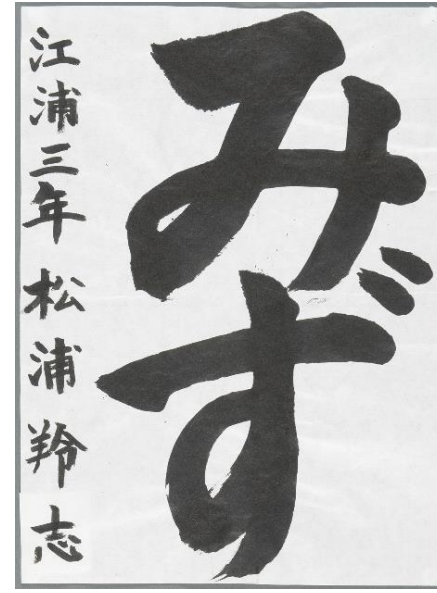 みず
江浦三年 松浦羚志